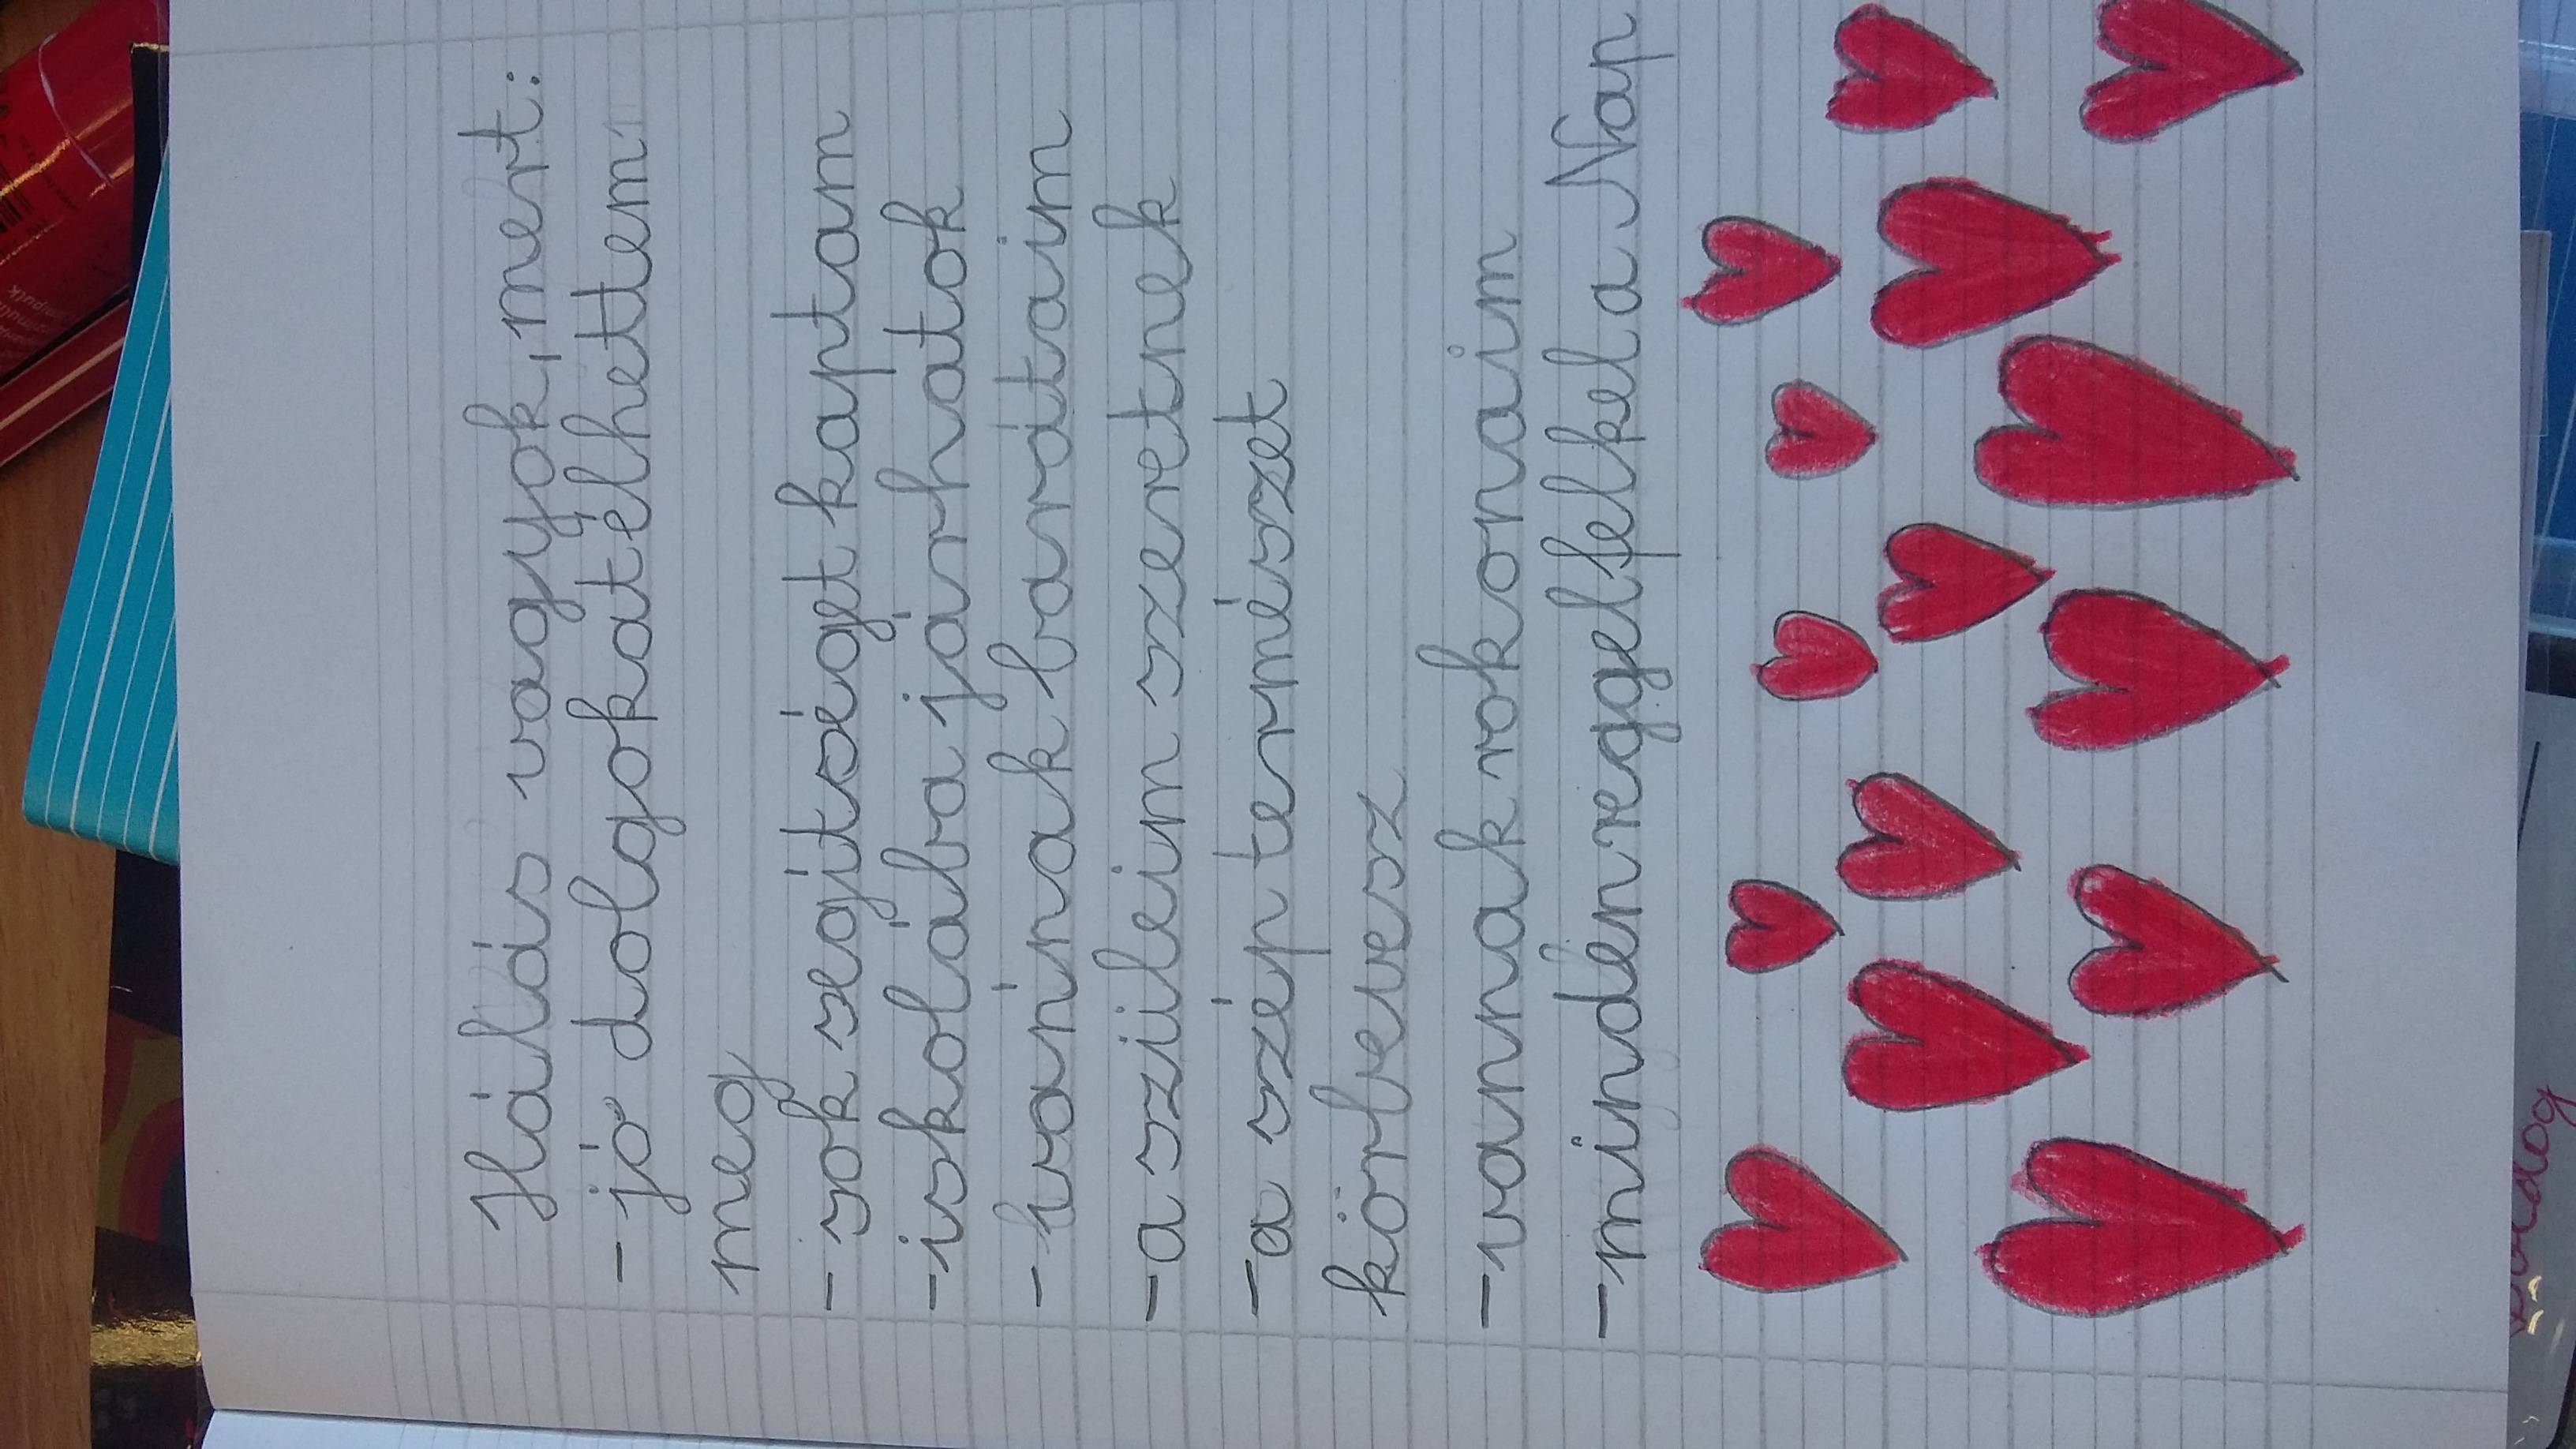 Hálás vagyok, mert:
- jó dolgokat élhettem
meg
- sok segítséget kaptam
- iskolába járhatok
- vannak barátaim
- a szüleim szeretnek
- a szép természet
körbevesz
- vannak rokonaim
- minden reggel felkel a Nap
boldog